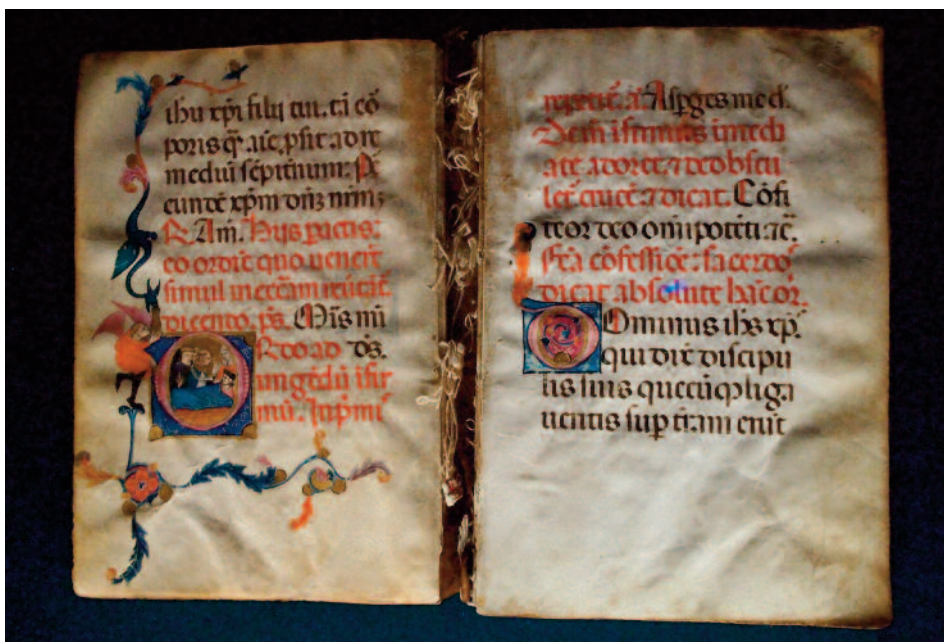 ihu xpi filij tui. ti cō
poris qr̄ aīe, psit ad re
medium sēpitnum. P
cundē xpm dnz nrm:
R. Am. Hijs pactis:
eo ordīe quo uenert̄
simul in ecc̄am
dicendo. ps. Mis m̄i
Rdo ad ds.
ungēdū īfir
mū. Inp̄mis
repetit᷑. a. Aspges me d.
Dein īfirmus inredi
ate adoret 7 deobscu
let᷑ crucē: 7 dicat. Cōfi
teor deo omīpotēti. 7c.
Fcā cōfessiōe: sacerdo
dicat absolute hāc or.
Dominus ihs xp̄.
qui dix̄ discipu
lis suis quecūq liga
ueritis sup t̄ram erūt